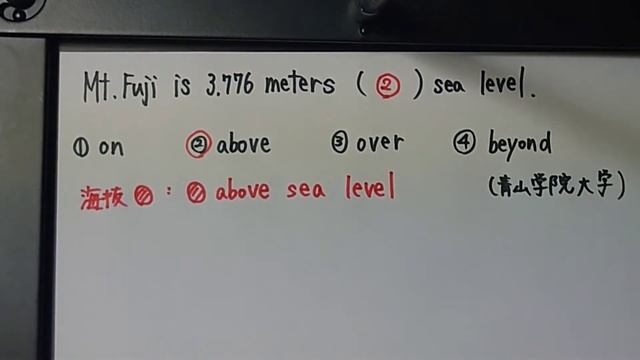 Mt. Fuji is 3.776 meters ( ② ) sea level.
① on ② above ③ over ④ beyond
(青山学院大学)
海抜〇 : 〇 above sea level